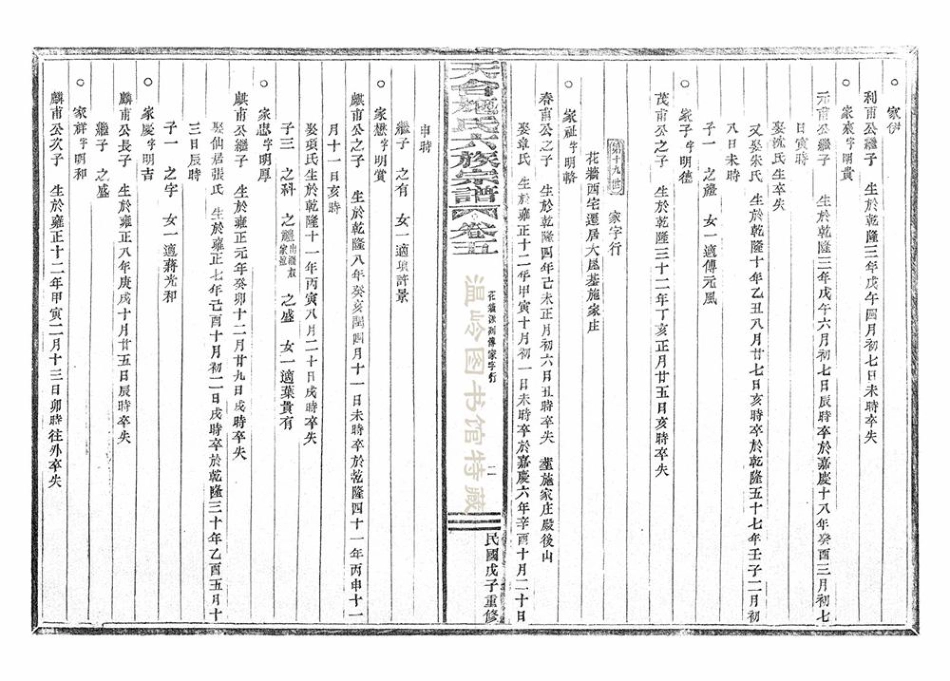 家伊
利甫公繼子 生於乾隆三年戊午四月初七日未時卒失
家襄字明貴
元甫公繼子 生於乾隆三年戊午六月初七日辰時卒於嘉慶十八年癸酉三月初七
日寅時
娶沈氏生卒失
又娶朱氏 生於乾隆十年乙丑八月廿七日亥時卒於乾隆五十七年壬子二月初
八日未時
子一 之 女一適傅元風
家子字明德
茂甫公之子 生於乾隆三十二年丁亥正月廿五日亥時卒失
第十九世 家字行
花牆西宅遷居大嵐基施家庄
家社字明轄
春甫公之子 生於乾隆四年己未正月初六日丑時卒失 墓施家庄殿後山
娶章氏 生於雍正十二年甲寅十月初一日未時卒於嘉慶六年辛酉十月二十日
天台 氏六族宗譜 卷五
花牆派 傳家字行
二
民國戊子重修
温岭图书馆特藏
申時
繼子 之有 女一適項許景
家懋字明賞
麒甫公之子 生於乾隆八年癸亥閏四月十一日未時卒於乾隆四十一年丙申十一
月十一日亥時
娶張氏生於乾隆十一年丙寅八月二十日戌時卒失
子三 之科 之 出繼 家 之盛 女一適葉貴有
家忠字明厚
麒甫公繼子 生於雍正元年癸卯十二月廿九日戌時卒失
娶仙居張氏 生於雍正七年己酉十月初二日戌時卒於乾隆三十年乙酉五月十
三日辰時
子一 之字 女一適蔣光和
家慶字明吉
麟甫公長子 生於雍正八年庚戌十月廿五日辰時卒失
繼子 之盛
家鮮字明和
麟甫公次子 生於雍正十二年甲寅二月十三日卯時往外卒失